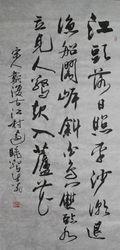 江頭落日照平沙潮退
漁船閣岸斜白鳥一雙臨水
立見人驚起入蘆花
宋人戴復古江村晚眺